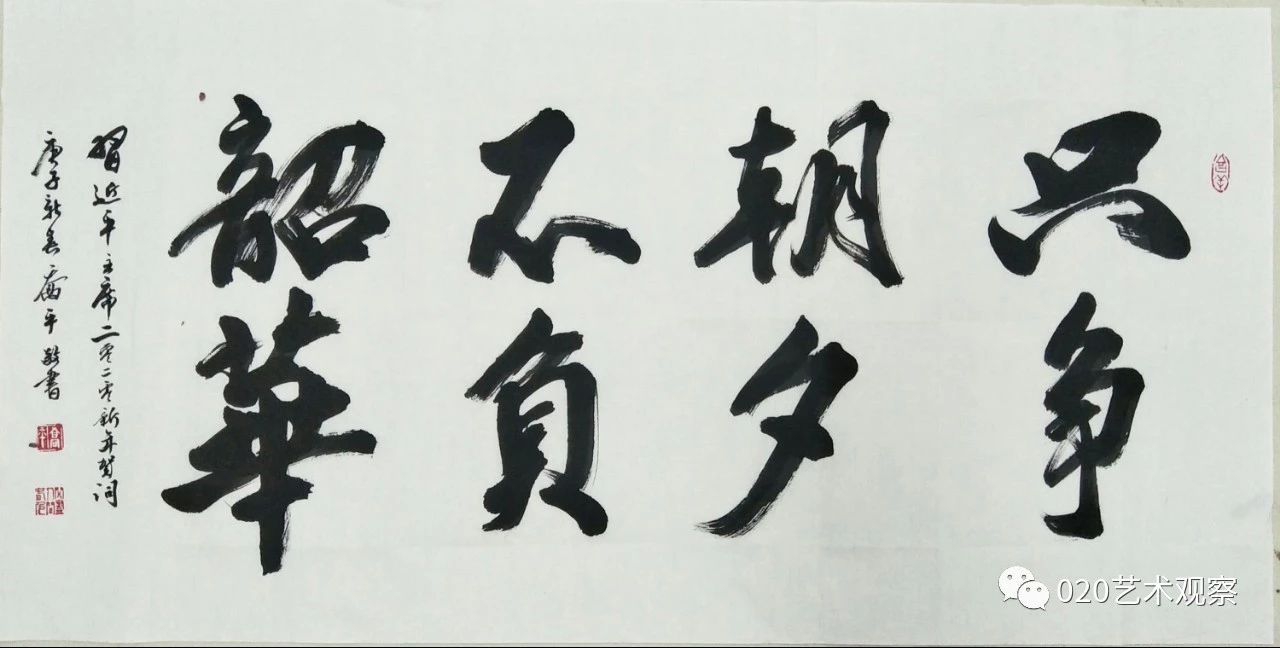 只争
朝夕
不负
韶華
習近平主席二零二零新年賀词
庚子新春高平敬書
020艺术观察